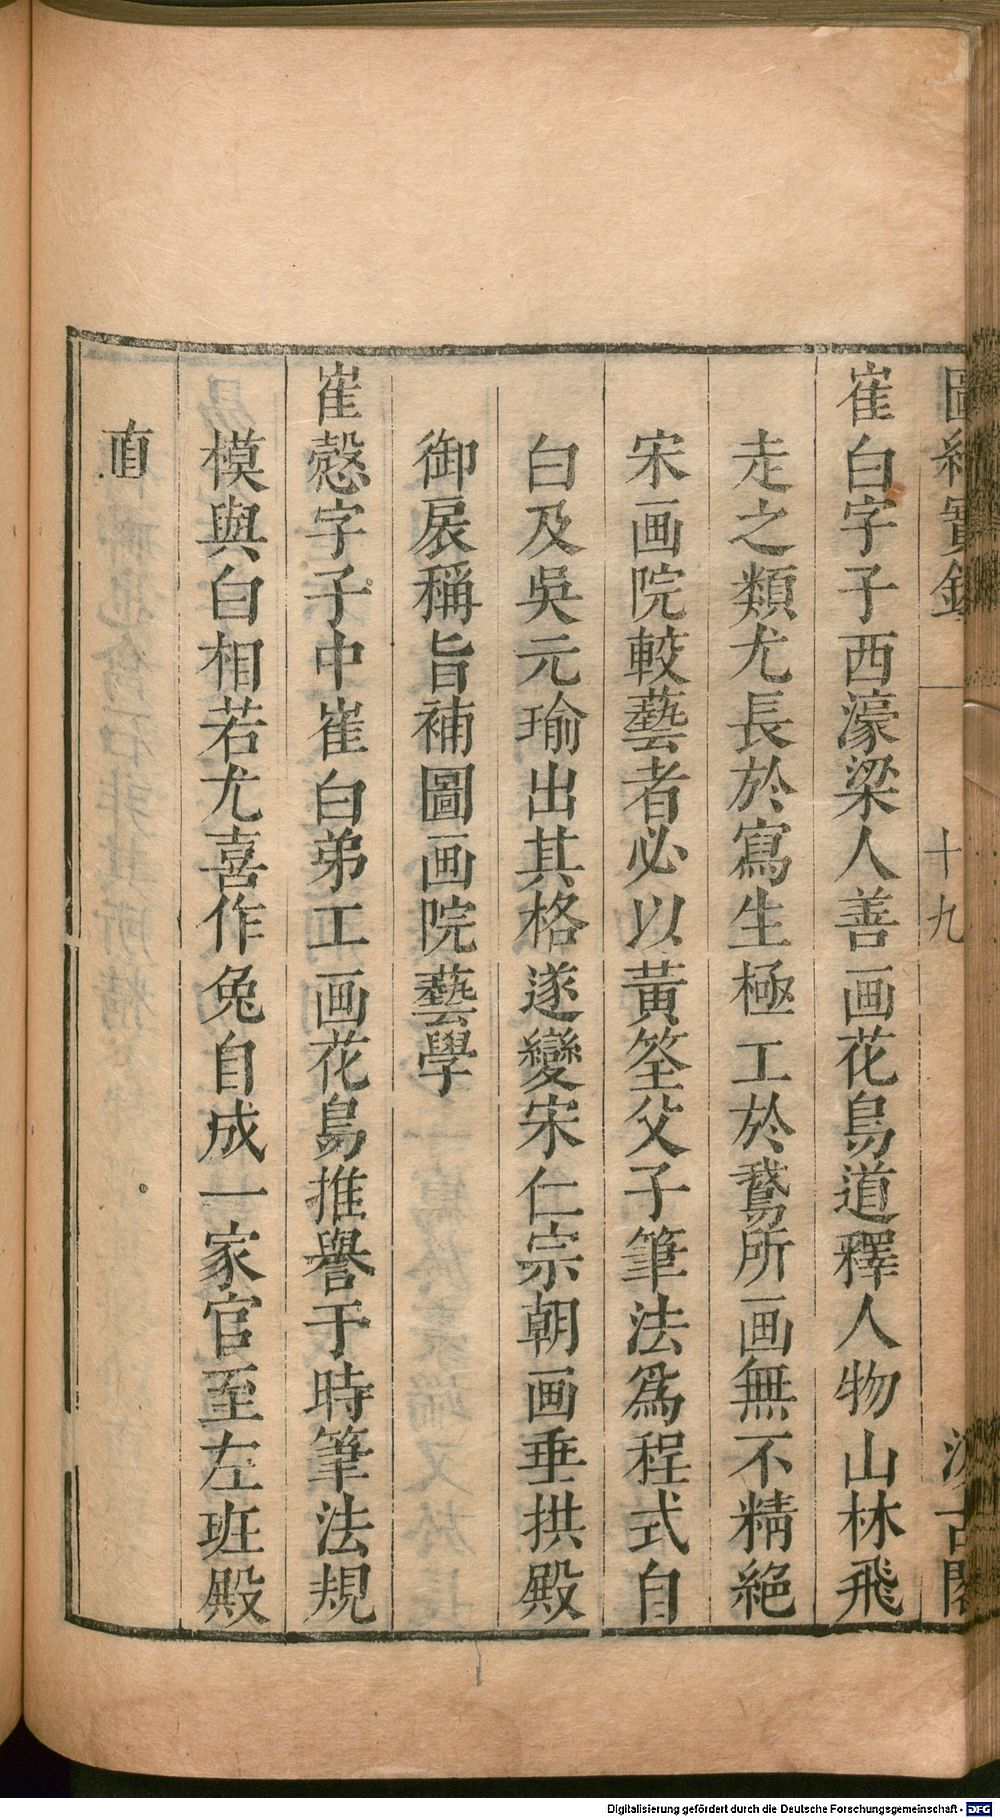 圖繪寶鑑
十九
汲古閣
崔白字子西濠梁人善画花鳥道釋人物山林飛
走之類尤長於寫生極工於鵞所画無不精絶
宋画院較藝者必以黃筌父子筆法爲程式自
白及吳元瑜出其格遂變宋仁宗朝画垂拱殿
御扆稱旨補圖画院藝學
崔慤字子中崔白弟工画花鳥推譽于時筆法規
模與白相若尤喜作兔自成一家官至左班殿
直
Digitalisierung gefördert durch die Deutsche Forschungsgemeinschaft - DFG